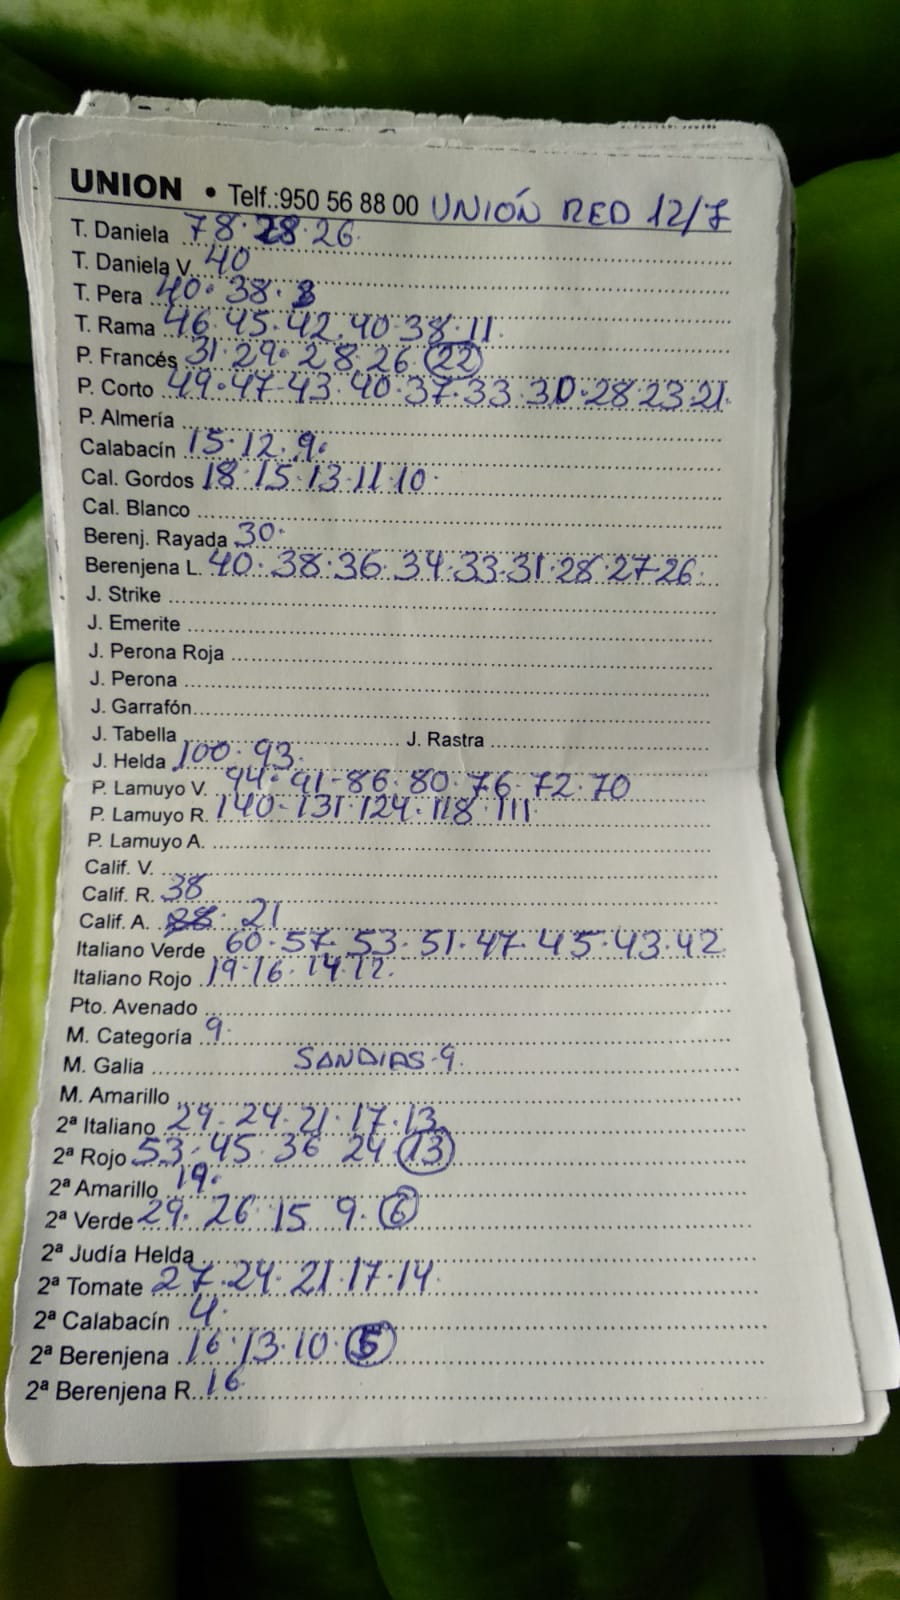 UNION • Telf.:950 56 88 00 UNIÓN RED 12/7
T. Daniela 78·28·26
T. Daniela V. 40
T. Pera 40·38·3
T. Rama 46·45·42·40·38·11
P. Francés 31·29·28·26·22
P. Corto 49·47·43·40·37·33·30·28·23·21
P. Almería
Calabacín 15·12·9·
Cal. Gordos 18·15·13·11·10·
Cal. Blanco
Berenj. Rayada 30·
Berenjena L. 40·38·36·34·33·31·28·27·26·
J. Strike
J. Emerite
J. Perona Roja
J. Perona
J. Garrafón
J. Tabella J. Rastra
J. Helda 100·93·
P. Lamuyo V. 94·91-86·80·76·72·70
P. Lamuyo R. 140-131·124·118·111
P. Lamuyo A.
Calif. V.
Calif. R. 38
Calif. A. 21
Italiano Verde 60·57·53·51·47·45·43·42
Italiano Rojo 19·16·14·12·
Pto. Avenado
M. Categoría 9·
M. Galia SANDIAS·9·
M. Amarillo
2ª Italiano 29·24·21·17·13
2ª Rojo 53·45·36 24 13
2ª Amarillo 19·
2ª Verde 29·26·15 9·6
2ª Judía Helda
2ª Tomate 27·24·21·17·14
2ª Calabacín 4·
2ª Berenjena 16·13·10·5
2ª Berenjena R. 16